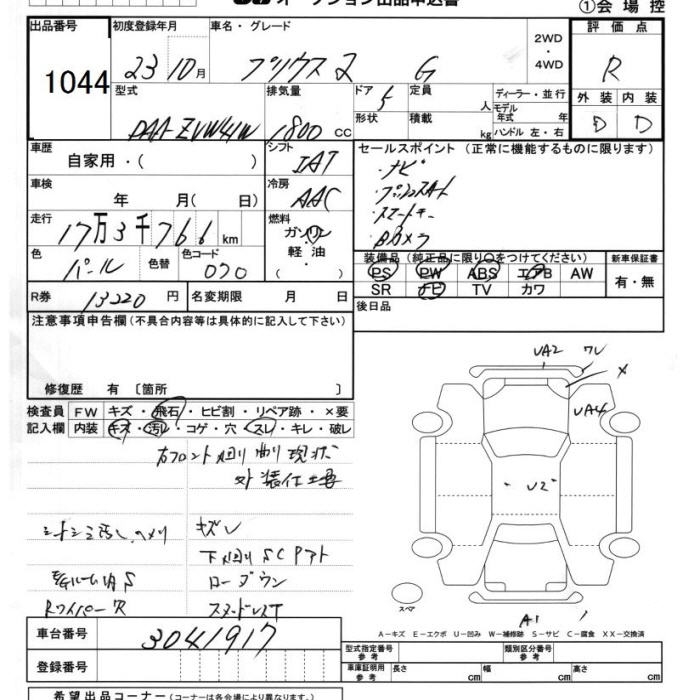 オークション出品申込書
①会場控
出品番号
1044
初度登録年月
23 10月
車名・グレード
プリウスα G
2WD
・
4WD
評価点
R
外装 内装
D D
型式
DAA-ZVW41W
排気量
1800 CC
ドア
5
形状
定員
人
積載
kg
ディーラー・並行
モデル
年式 年
ハンドル 左・右
車歴
自家用・( )
シフト
IAT
セールスポイント (正常に機能するものに限ります)
・ナビ
・プッシュスタート
・スマートキー
・Bカメラ
車検
年 月( 日)
冷房
AAC
走行
17万3千766km
燃料
ガソリン
・
軽油
色
パール
色替
色コード
070
装備品 (純正品に限り○をつけてください)
PS PW ABS エアB AW
SR ナビ TV カワ
新車保証書
有・無
R券
13220円
名変期限 月 日
後日品
注意事項申告欄 (不具合内容等は具体的に記入して下さい)
修復歴 有 〔箇所 〕
検査員
記入欄
FW キズ・飛石・ヒビ割・リペア跡・×要
内装 キズ・汚レ・コゲ・穴・スレ・キレ・破レ
右フロント廻り曲り現状
外装仕上要
キズレ
下廻りSCアト
ローダウン
Rワイパー欠
スタッドレスT
UA2 ワレ
×
UA4
U2
A1
スペア
A−キズ E−エクボ U−凹み W−補修跡 S−サビ C−腐食 XX−交換済
車台番号
3041917
登録番号
型式指定番号
参考
類別区分番号
参考
車庫証明用
参考
長さ cm
幅 cm
高さ cm
希望出品コーナー (コーナーは各会場により異なります。)